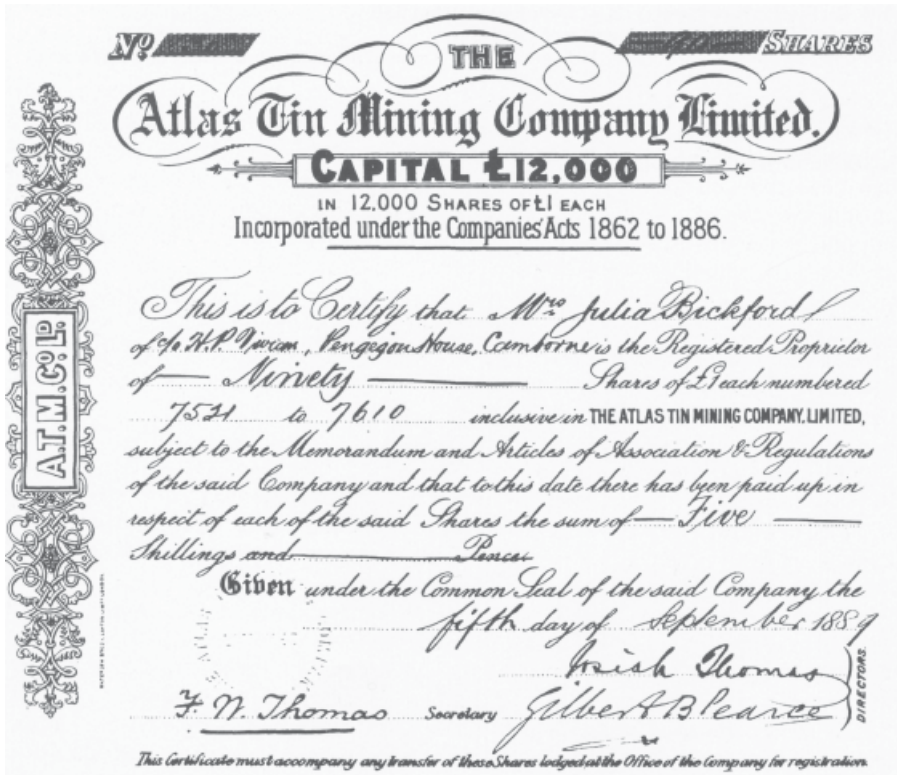 No SHARES
THE
Atlas Tin Mining Company Limited.
CAPITAL £12,000
IN 12,000 SHARES OF £1 EACH
Incorporated under the Companies' Acts 1862 to 1886.
This is to Certify that Mrs Julia Bickford
of c/o H.P. Vivian, Pengegon House, Camborne is the Registered Proprietor
of Ninety Shares of £1 each numbered
7521 to 7610 inclusive in THE ATLAS TIN MINING COMPANY, LIMITED,
subject to the Memorandum and Articles of Association & Regulations
of the said Company and that to this date there has been paid up in
respect of each of the said Shares the sum of Five
Shillings and Pence
Given under the Common Seal of the said Company the
fifth day of September 1889
Josiah Thomas
F. W. Thomas Secretary Gilbert B Pearce
DIRECTORS.
This Certificate must accompany any transfer of these Shares lodged at the Office of the Company for registration.
A.T.M. Co. Ld.
ATLAS